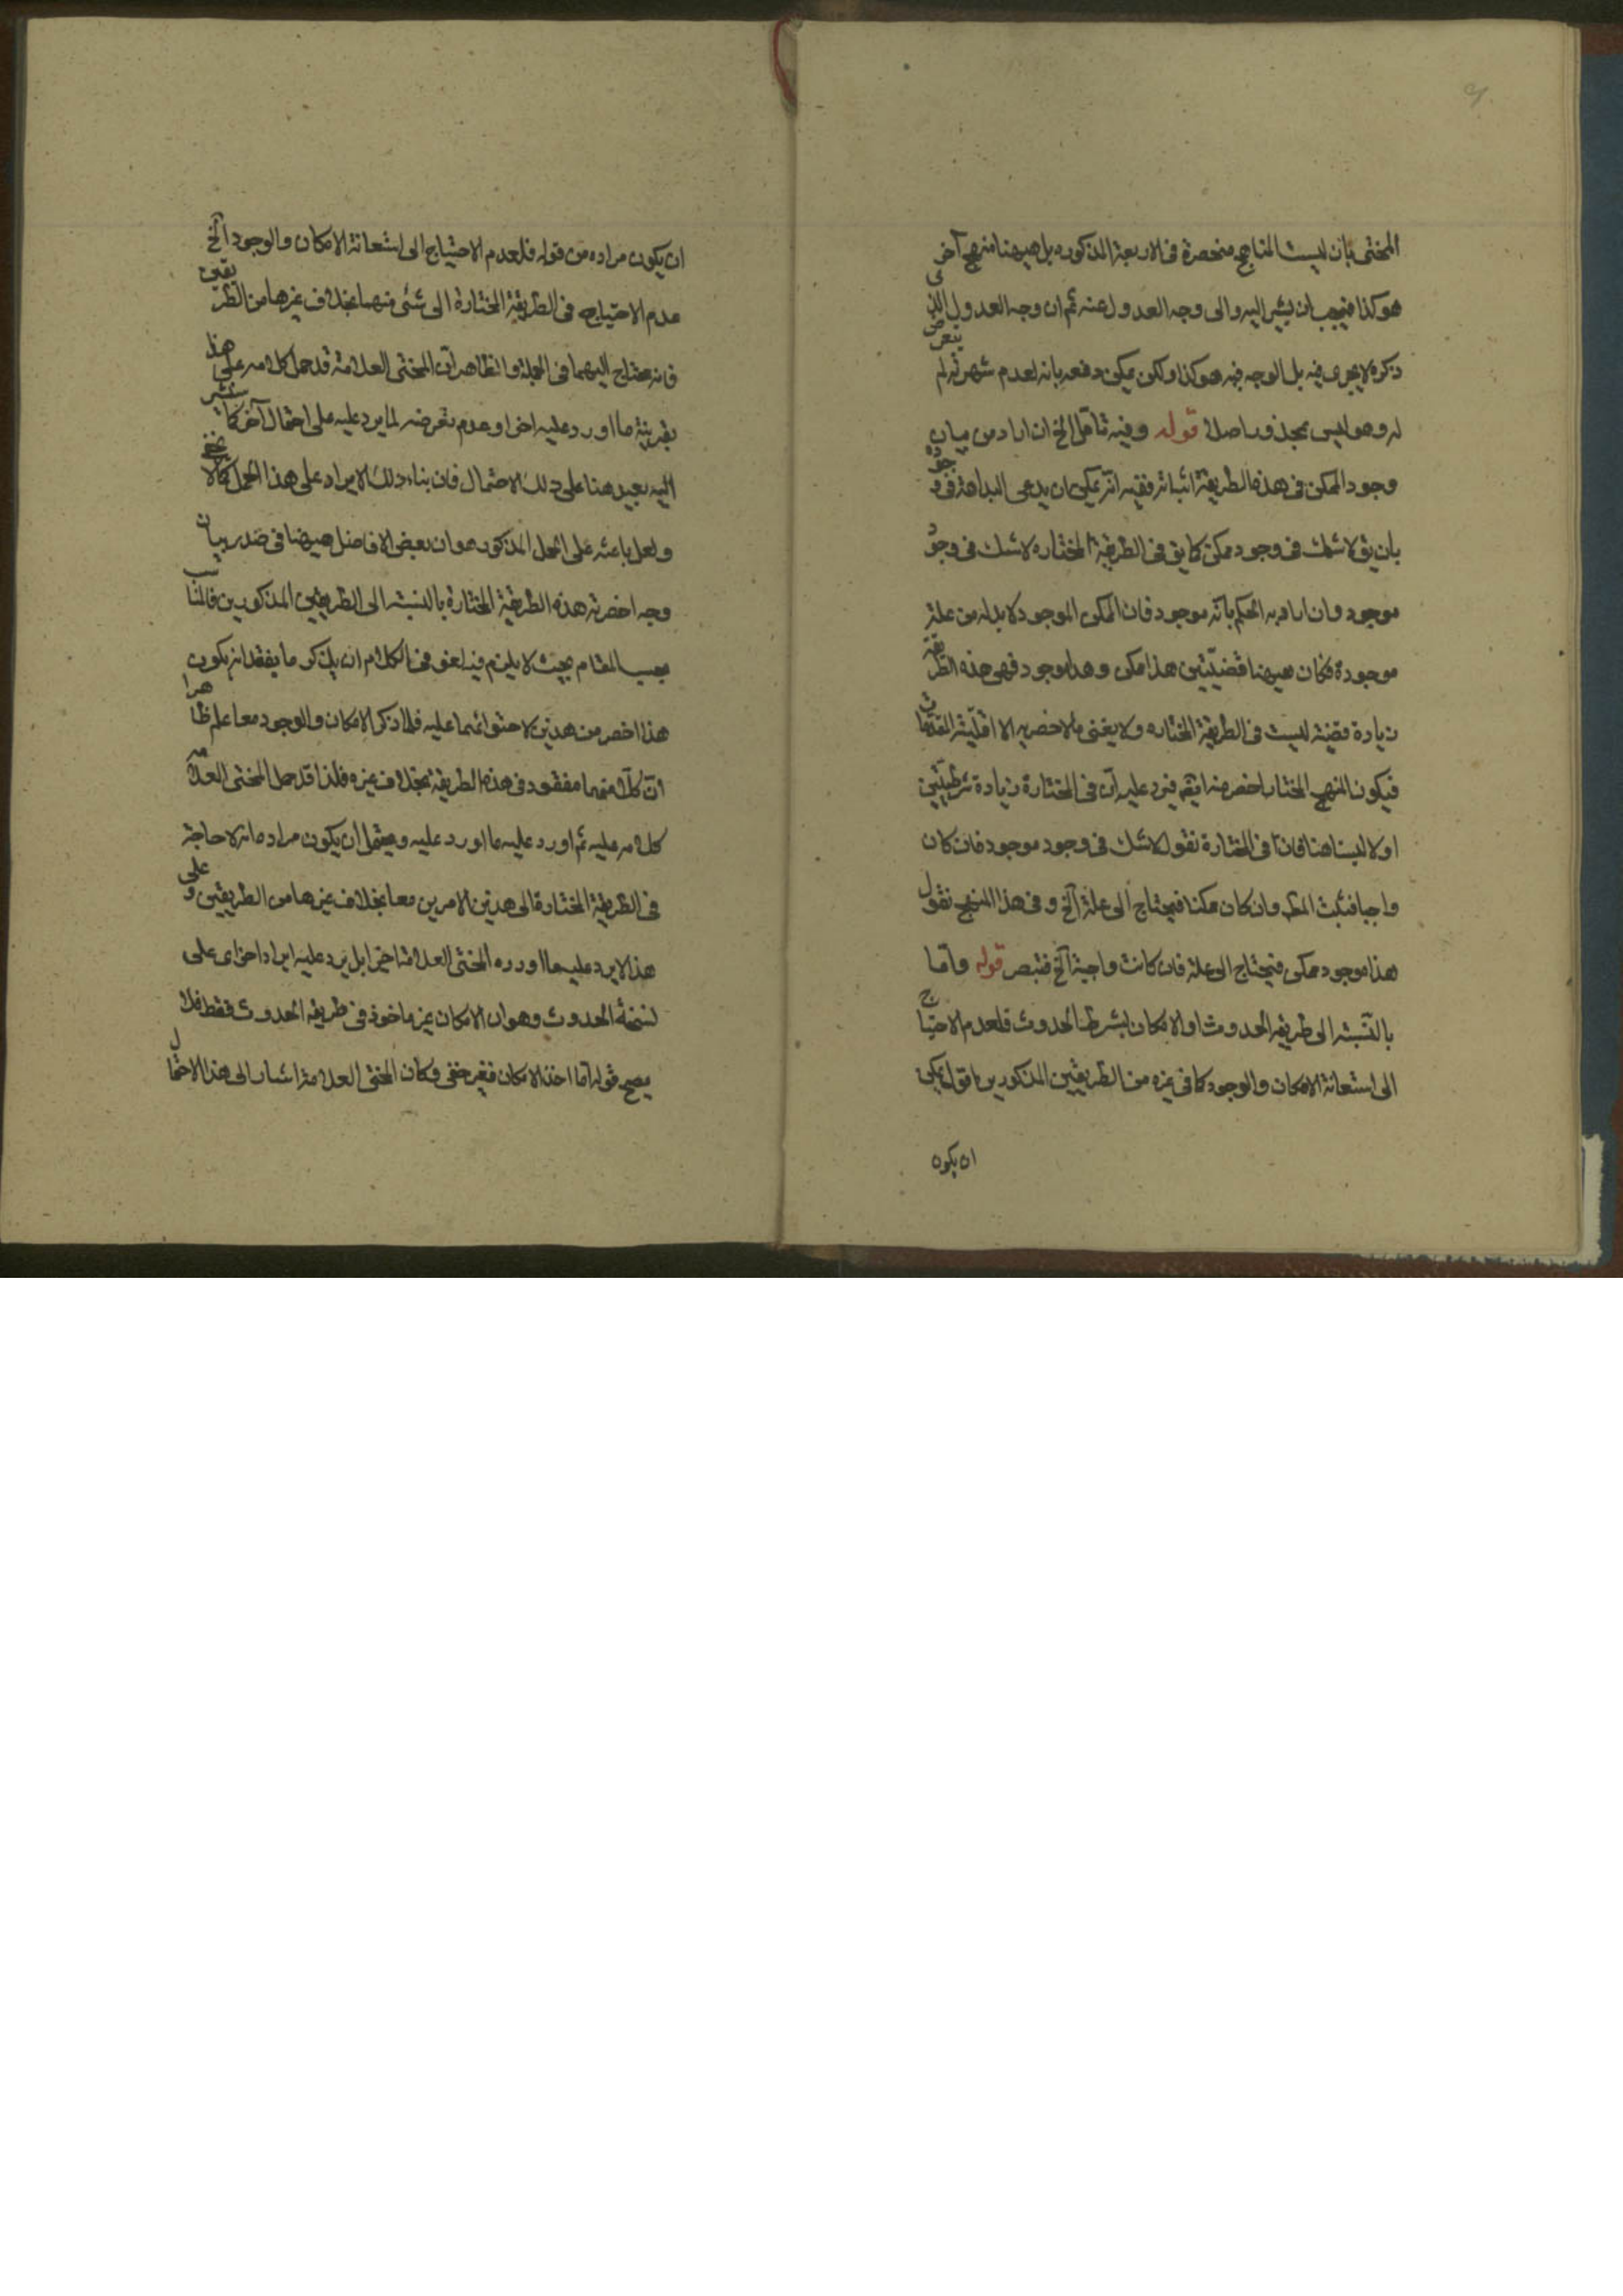 المحشى بان ليست المناهج منحصرة فى الاربعة المذكوره بل هيهنا منهج آخر
هو كذا فيجب ان يشير اليه والى وجه العدول عنه ثم ان وجه العدول الذى
ذكره لا يجرى فيه بل الوجه فيه هو كذا ولكن يمكن دفعه بانه لعدم شهرته لم يتعرض
له وهو ليس بمحذور اصلا قوله وفيه تامل الخ ان اراد من بيان
وجود الممكن فى هذه الطريقة اثباته ففيه انه يمكن ان يدعى البداهة فى وجوده
بان يق لا شك فى وجود ممكن كما يق فى الطريقة المختاره لا شك فى وجود
موجود وان اراد به الحكم بانه موجود فان الممكن الموجود لا بد له من علة
موجودة فكان هيهنا قضيتين هذا ممكن وهذا موجود فهى هذه الطريقة
زيادة قضية ليست فى الطريقة المختاره ولا يعنى بالاخصرية الا اقلية المقدمات
فيكون المنهج المختار اخصر منه ايضا فيرد عليه ان فى المختارة زيادة شرطيتين
اولا ليستا هنا فان فى المختارة نقول لا شك فى وجود موجود فان كان
واجبا فثبت المط وان كان ممكنا فيحتاج الى علة آلخ وفى هذا المنهج نقول
هذا موجود ممكن فيحتاج الى علة فان كانت واجبة آلخ فتبصر قوله واما
بالنسبة الى طريقة الحدوث او الامكان بشرط الحدوث فلعدم الاحتياج
الى استعانة الامكان والوجود كما فى غيره من الطريقتين المذكورين اقول يمكن
ان يكون
ان يكون مراده من قوله فلعدم الاحتياج الى استعانة الامكان والوجود آلخ
عدم الاحتياج فى الطريقة المختارة الى شئ منهما بخلاف غيرها من الطريقين
فانه يحتاج اليهما فى الجملة والظاهر ان المحشى العلامة قد حمل كلامه على هذا
بقرينة ما اورد عليه اخرا وعدم تعرضه لما يرد عليه على احتمال آخر كما سنشير
اليه بعيد هنا على ذلك الاحتمال فان بناء ذلك الايراد على هذا الحمل كما لا يخفى
ولعل باعثه على الحمل المذكور هو ان بعض الافاضل هيهنا فى صدر بيان
وجه اخصرية هذه الطريقة المختارة بالنسبة الى الطريقين المذكورين فالمناسب
بحسب المقام بحيث لا يلزم فيه لغو فى الكلام ان يذكر ما بفقدانه يكون
هذا اخصر من هذين لاحتوائهما عليه فلما ذكر الامكان والوجود معا علم ظاهرا
ان كلا منهما مفقود فى هذه الطريقة بخلاف غيره فلذا قد حمل المحشى العلامة
كلامه عليه ثم اورد عليه ما اورد عليه ويحتمل ان يكون مراده انه لا حاجة
فى الطريقة المختارة الى هذين الامرين معا بخلاف غيرها من الطريقين وعلى
هذا لا يرد عليه ما اورده المحشى العلامة اخيرا بل يرد عليه ايراد آخر اى على
نسخة الحدوث وهو ان الامكان غير ماخوذ فى طريقة الحدوث فقط فلا
يصح قوله اما اخذ الامكان فغير خفى وكان المحشى العلامة اشار الى هذا الاحتمال